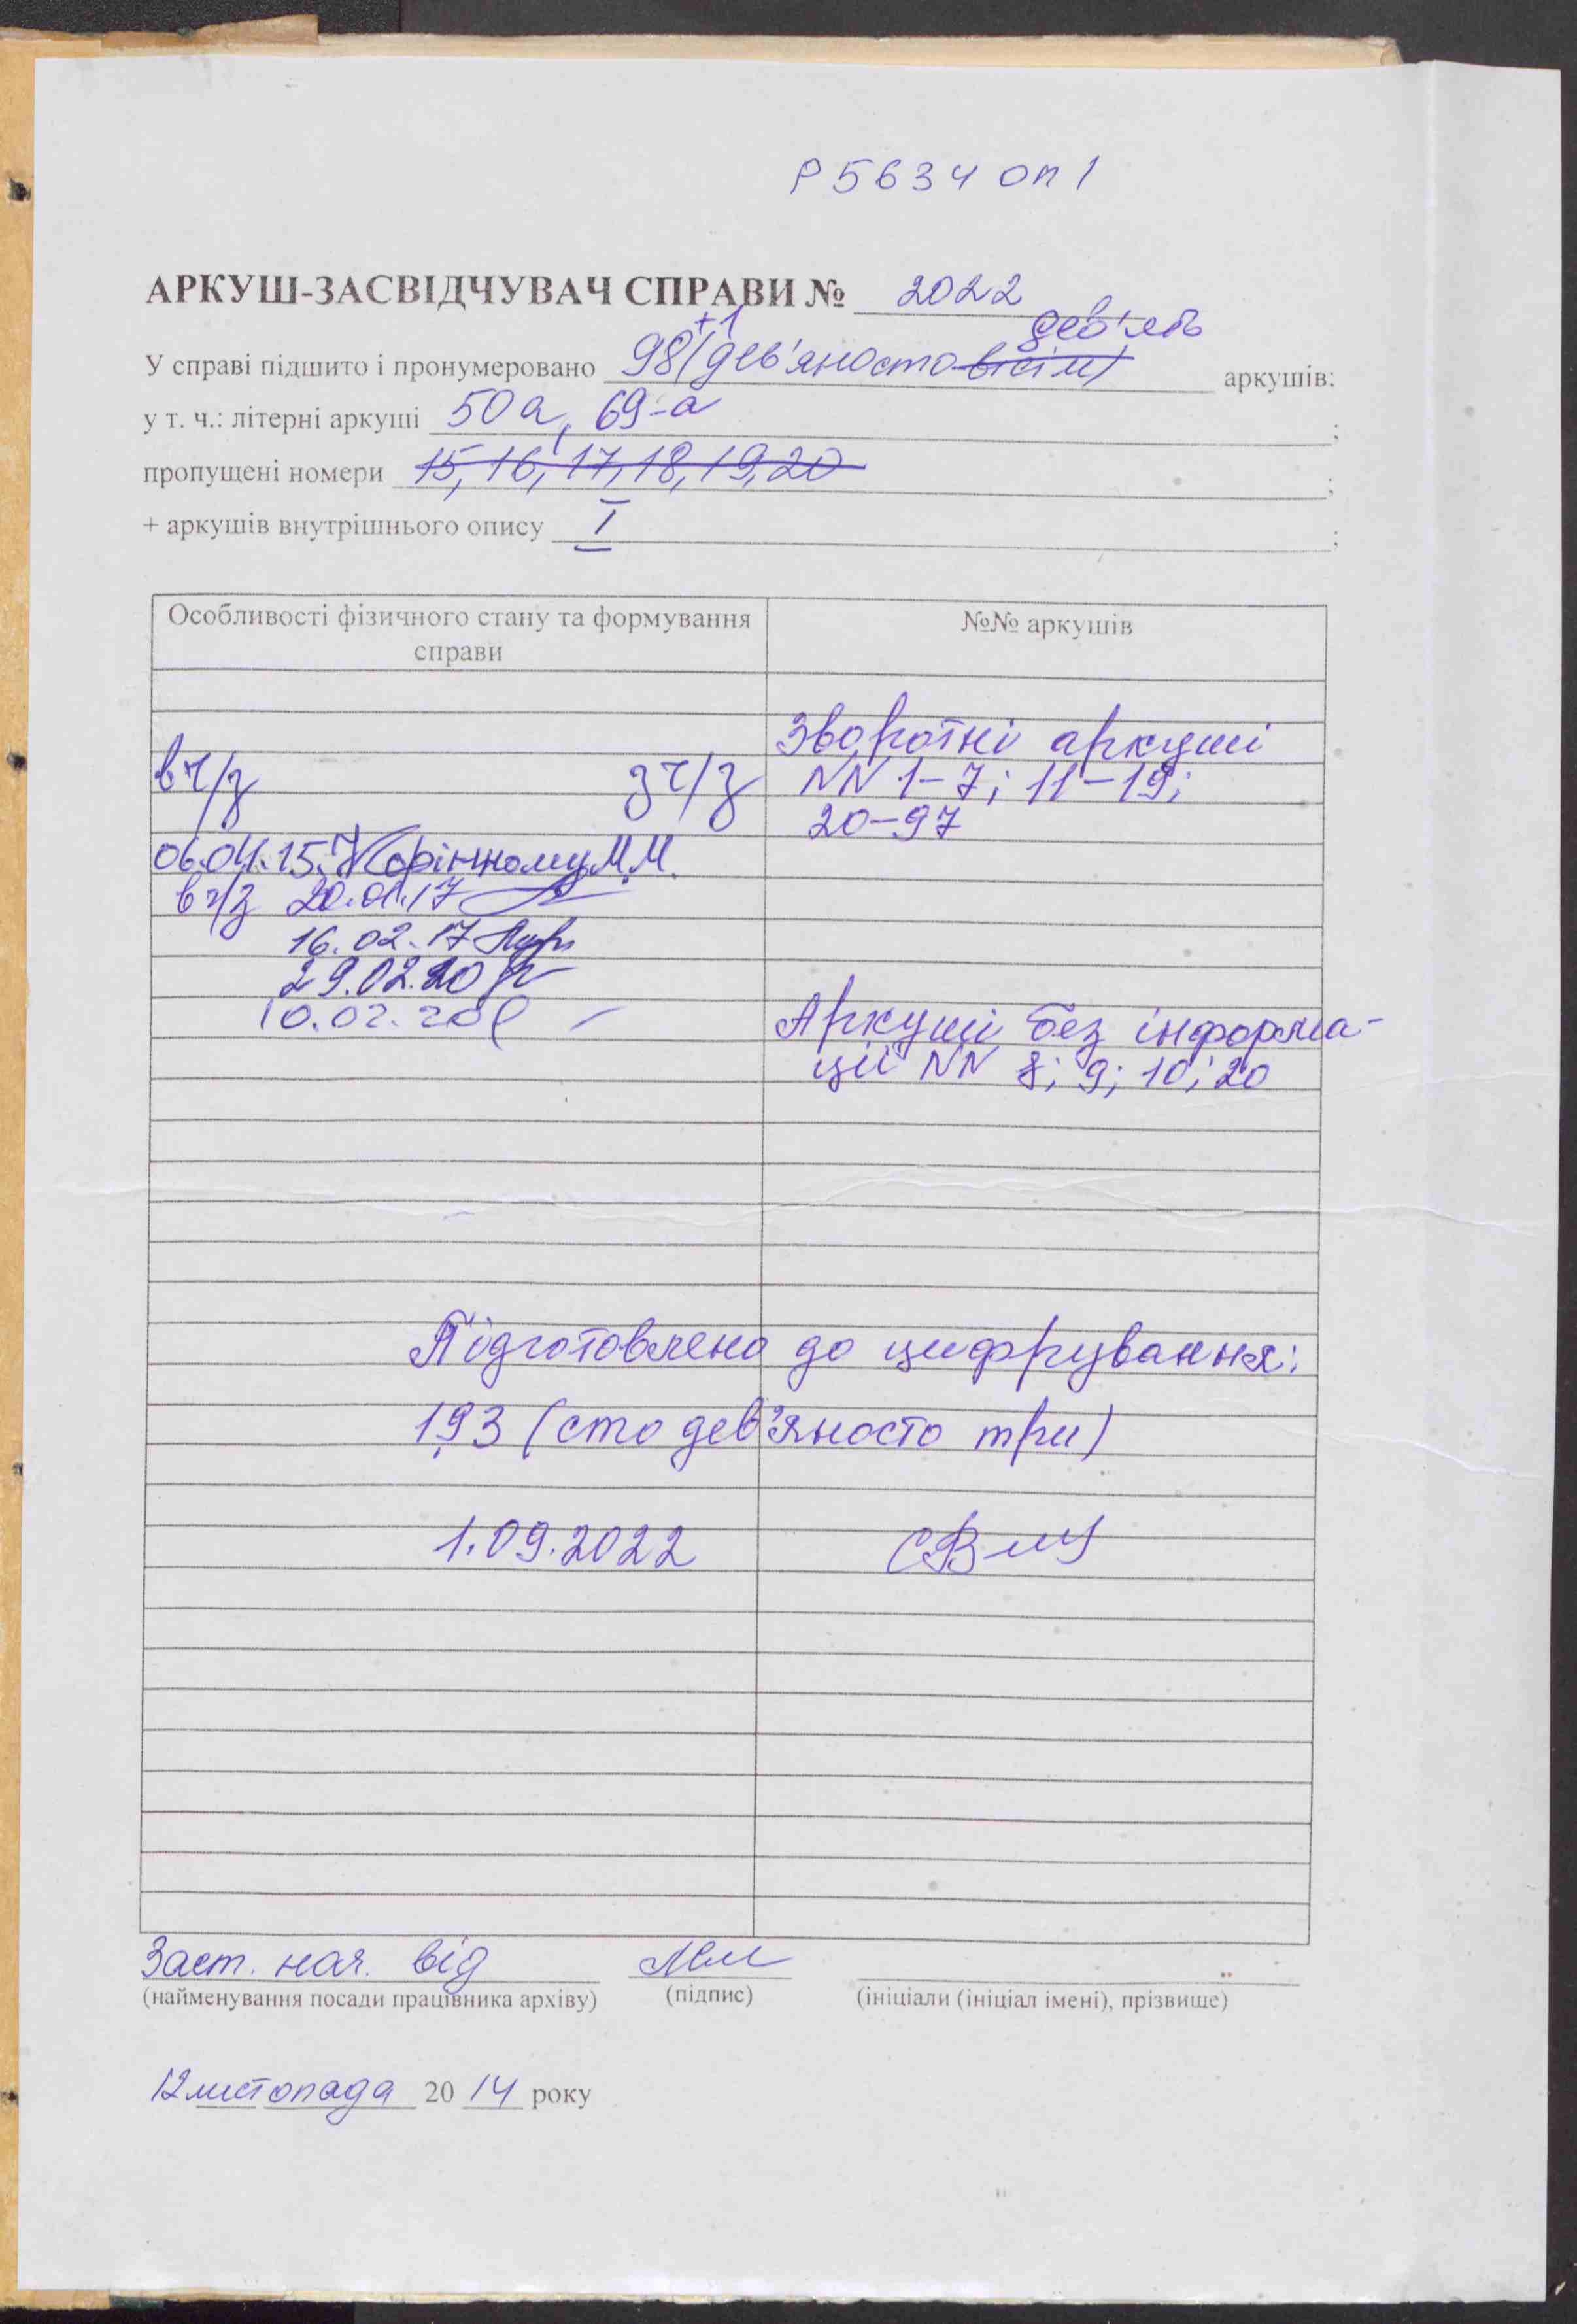 Р5634 оп 1
АРКУШ-ЗАСВІДЧУВАЧ СПРАВИ № 2022
+1 дев'ять
У справі підшито і пронумеровано 98 (дев'яносто вісім) аркушів:
у т. ч.: літерні аркуші 50а, 69-а ;
пропущені номери 15, 16, 17, 18, 19, 20 ;
+ аркушів внутрішнього опису I ;
Особливості фізичного стану та формування справи
№№ аркушів
Зворотні аркуші
в ч/з з ч/з NN 1-7; 11-19;
20-97
06.04.15 М.М.
в ч/з 20.01.17
16.02.17
29.02.20
10.02.
Аркуші без інформа-
ції NN 8; 9; 10; 20
Підготовлено до цифрування:
193 (сто дев'яносто три)
1.09.2022
Заст. нач. від
(найменування посади працівника архіву) (підпис) (ініціали (ініціал імені), прізвище)
12 листопада 2014 року